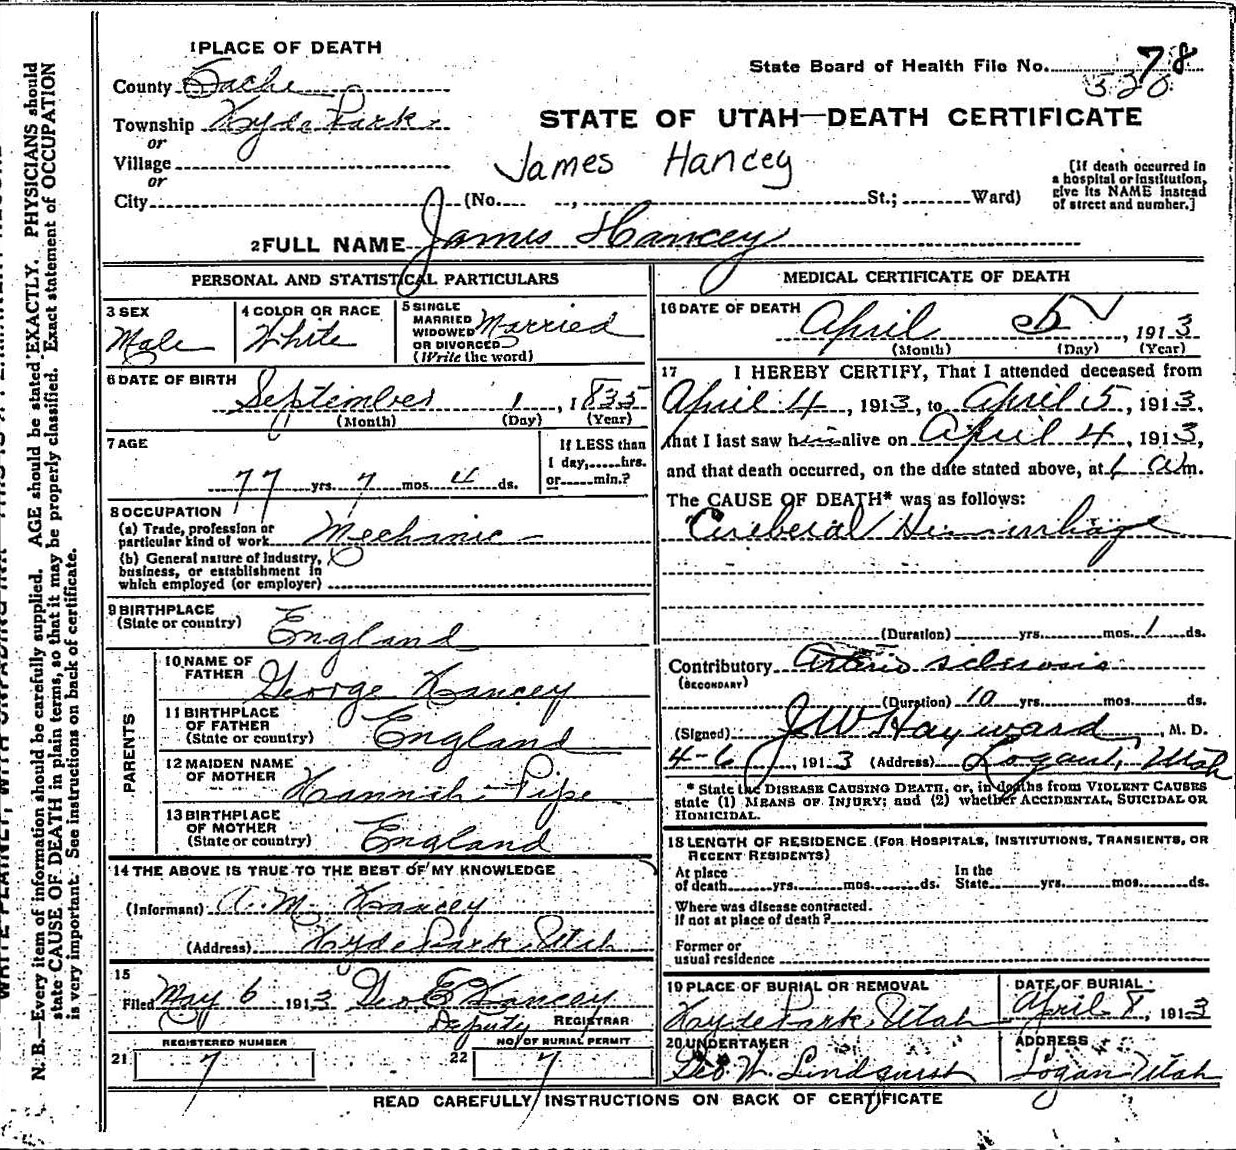 1 PLACE OF DEATH
County Cache
Township Hyde Park
or
Village
or
City
State Board of Health File No. 78
320
STATE OF UTAH—DEATH CERTIFICATE
James Hancey
(No. , St.; Ward)
[If death occurred in a hospital or institution, give its NAME instead of street and number.]
2 FULL NAME James Hancey
PERSONAL AND STATISTICAL PARTICULARS
3 SEX
Male
4 COLOR OR RACE
White
5 SINGLE
MARRIED
WIDOWED
OR DIVORCED
(Write the word)
Married
6 DATE OF BIRTH
September 1, 1835
(Month) (Day) (Year)
7 AGE
77 yrs. 7 mos. 4 ds.
If LESS than
1 day, hrs.
or min.?
8 OCCUPATION
(a) Trade, profession or
particular kind of work Mechanic
(b) General nature of industry,
business, or establishment in
which employed (or employer)
9 BIRTHPLACE
(State or country) England
PARENTS
10 NAME OF
FATHER George Hancey
11 BIRTHPLACE
OF FATHER
(State or country) England
12 MAIDEN NAME
OF MOTHER Hannah Pipe
13 BIRTHPLACE
OF MOTHER
(State or country) England
14 THE ABOVE IS TRUE TO THE BEST OF MY KNOWLEDGE
(Informant) A. M. Hancey
(Address) Hyde Park, Utah
15
Filed May 6 1913 Geo E Hancey
Deputy REGISTRAR
REGISTERED NUMBER
21 7
NO. OF BURIAL PERMIT
22 7
MEDICAL CERTIFICATE OF DEATH
16 DATE OF DEATH
April 5, 1913
(Month) (Day) (Year)
17 I HEREBY CERTIFY, That I attended deceased from
April 4, 1913, to April 5, 1913,
that I last saw him alive on April 4, 1913,
and that death occurred, on the date stated above, at 6 a m.
The CAUSE OF DEATH* was as follows:
Cereberal Hemurrhage
(Duration) yrs. mos. 1 ds.
Contributory Arterio sclerosis
(SECONDARY)
(Duration) 10 yrs. mos. ds.
(Signed) J W Hayward, M. D.
4-6, 1913 (Address) Logan, Utah
* State the DISEASE CAUSING DEATH, or, in deaths from VIOLENT CAUSES
state (1) MEANS OF INJURY; and (2) whether ACCIDENTAL, SUICIDAL OR
HOMICIDAL.
18 LENGTH OF RESIDENCE (FOR HOSPITALS, INSTITUTIONS, TRANSIENTS, OR
RECENT RESIDENTS)
At place In the
of death yrs. mos. ds. State yrs. mos. ds.
Where was disease contracted.
If not at place of death?
Former or
usual residence
19 PLACE OF BURIAL OR REMOVAL
Hyde Park, Utah
DATE OF BURIAL
April 8, 1913
20 UNDERTAKER
Geo. W. Lindquist
ADDRESS
Logan Utah
READ CAREFULLY INSTRUCTIONS ON BACK OF CERTIFICATE
N. B.—Every item of information should be carefully supplied. AGE should be stated EXACTLY. PHYSICIANS should
state CAUSE OF DEATH in plain terms, so that it may be properly classified. Exact statement of OCCUPATION
is very important. See instructions on back of certificate.